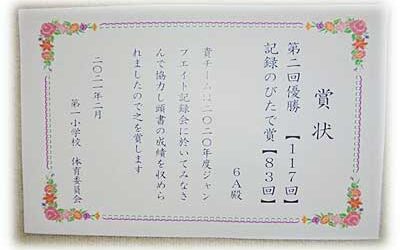 賞状
第二回優勝 【117回】
記録のびたで賞【83回】
6A殿
貴チームは二〇二〇年度ジャン
フェイト記録会に於いてみなさ
んで協力し頭書の成績を収めら
れましたので之を賞します
二〇二一年二月
第一小学校 体育委員会